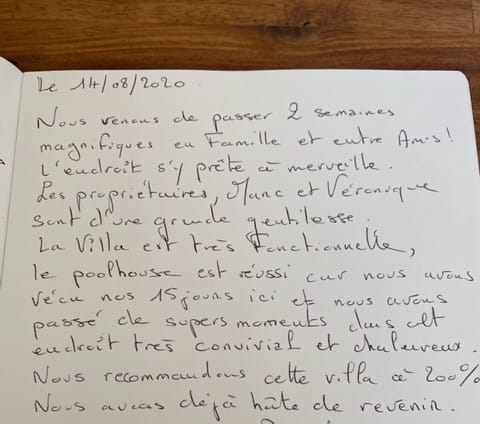 Le 14/08/2020.
Nous venons de passer 2 semaines
magnifiques en Famille et entre Amis!
L'endroit s'y prête à merveille.
Les propriétaires, Marc et Véronique
sont d'une grande gentillesse.
La Villa est très Fonctionnelle,
le poolhouse est réussi car nous avons
vécu nos 15 jours ici et nous avons
passé de supers moments dans cet
endroit très convivial et chaleureux.
Nous recommandons cette villa à 200%
Nous avons déjà hâte de revenir.